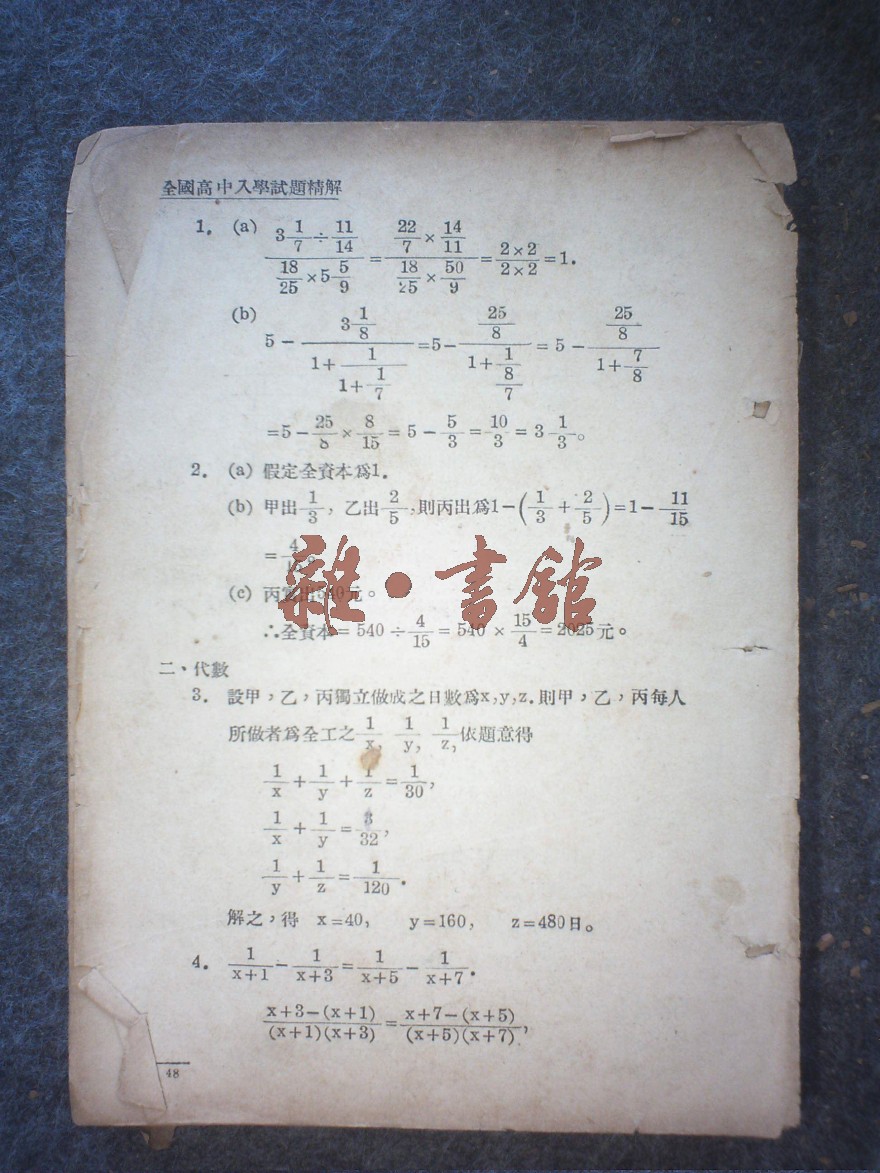 全國高中入學試題精解
1. (a) (3 1/7 ÷ 11/14)/(18/25 × 5 5/9) = (22/7 × 14/11)/(18/25 × 50/9) = (2×2)/(2×2) = 1.
(b) 5 − (3 1/8)/(1+1/(1+1/7)) = 5 − (25/8)/(1+1/(8/7)) = 5 − (25/8)/(1+7/8)
= 5 − 25/8 × 8/15 = 5 − 5/3 = 10/3 = 3 1/3。
2. (a) 假定全資本爲1.
(b) 甲出 1/3, 乙出 2/5, 則丙出爲1−(1/3 + 2/5) = 1 − 11/15
= 4/15。
(c) 丙實出540元。
∴全資本 = 540 ÷ 4/15 = 540 × 15/4 = 2025元。
雜·書館
二、代數
3. 設甲,乙,丙獨立做成之日數爲x,y,z.則甲,乙,丙每人
所做者爲全工之 1/x, 1/y, 1/z, 依題意得
1/x + 1/y + 1/z = 1/30,
1/x + 1/y = 3/32,
1/y + 1/z = 1/120.
解之,得 x=40, y=160, z=480日。
4. 1/(x+1) − 1/(x+3) = 1/(x+5) − 1/(x+7).
(x+3−(x+1))/((x+1)(x+3)) = (x+7−(x+5))/((x+5)(x+7)),
48